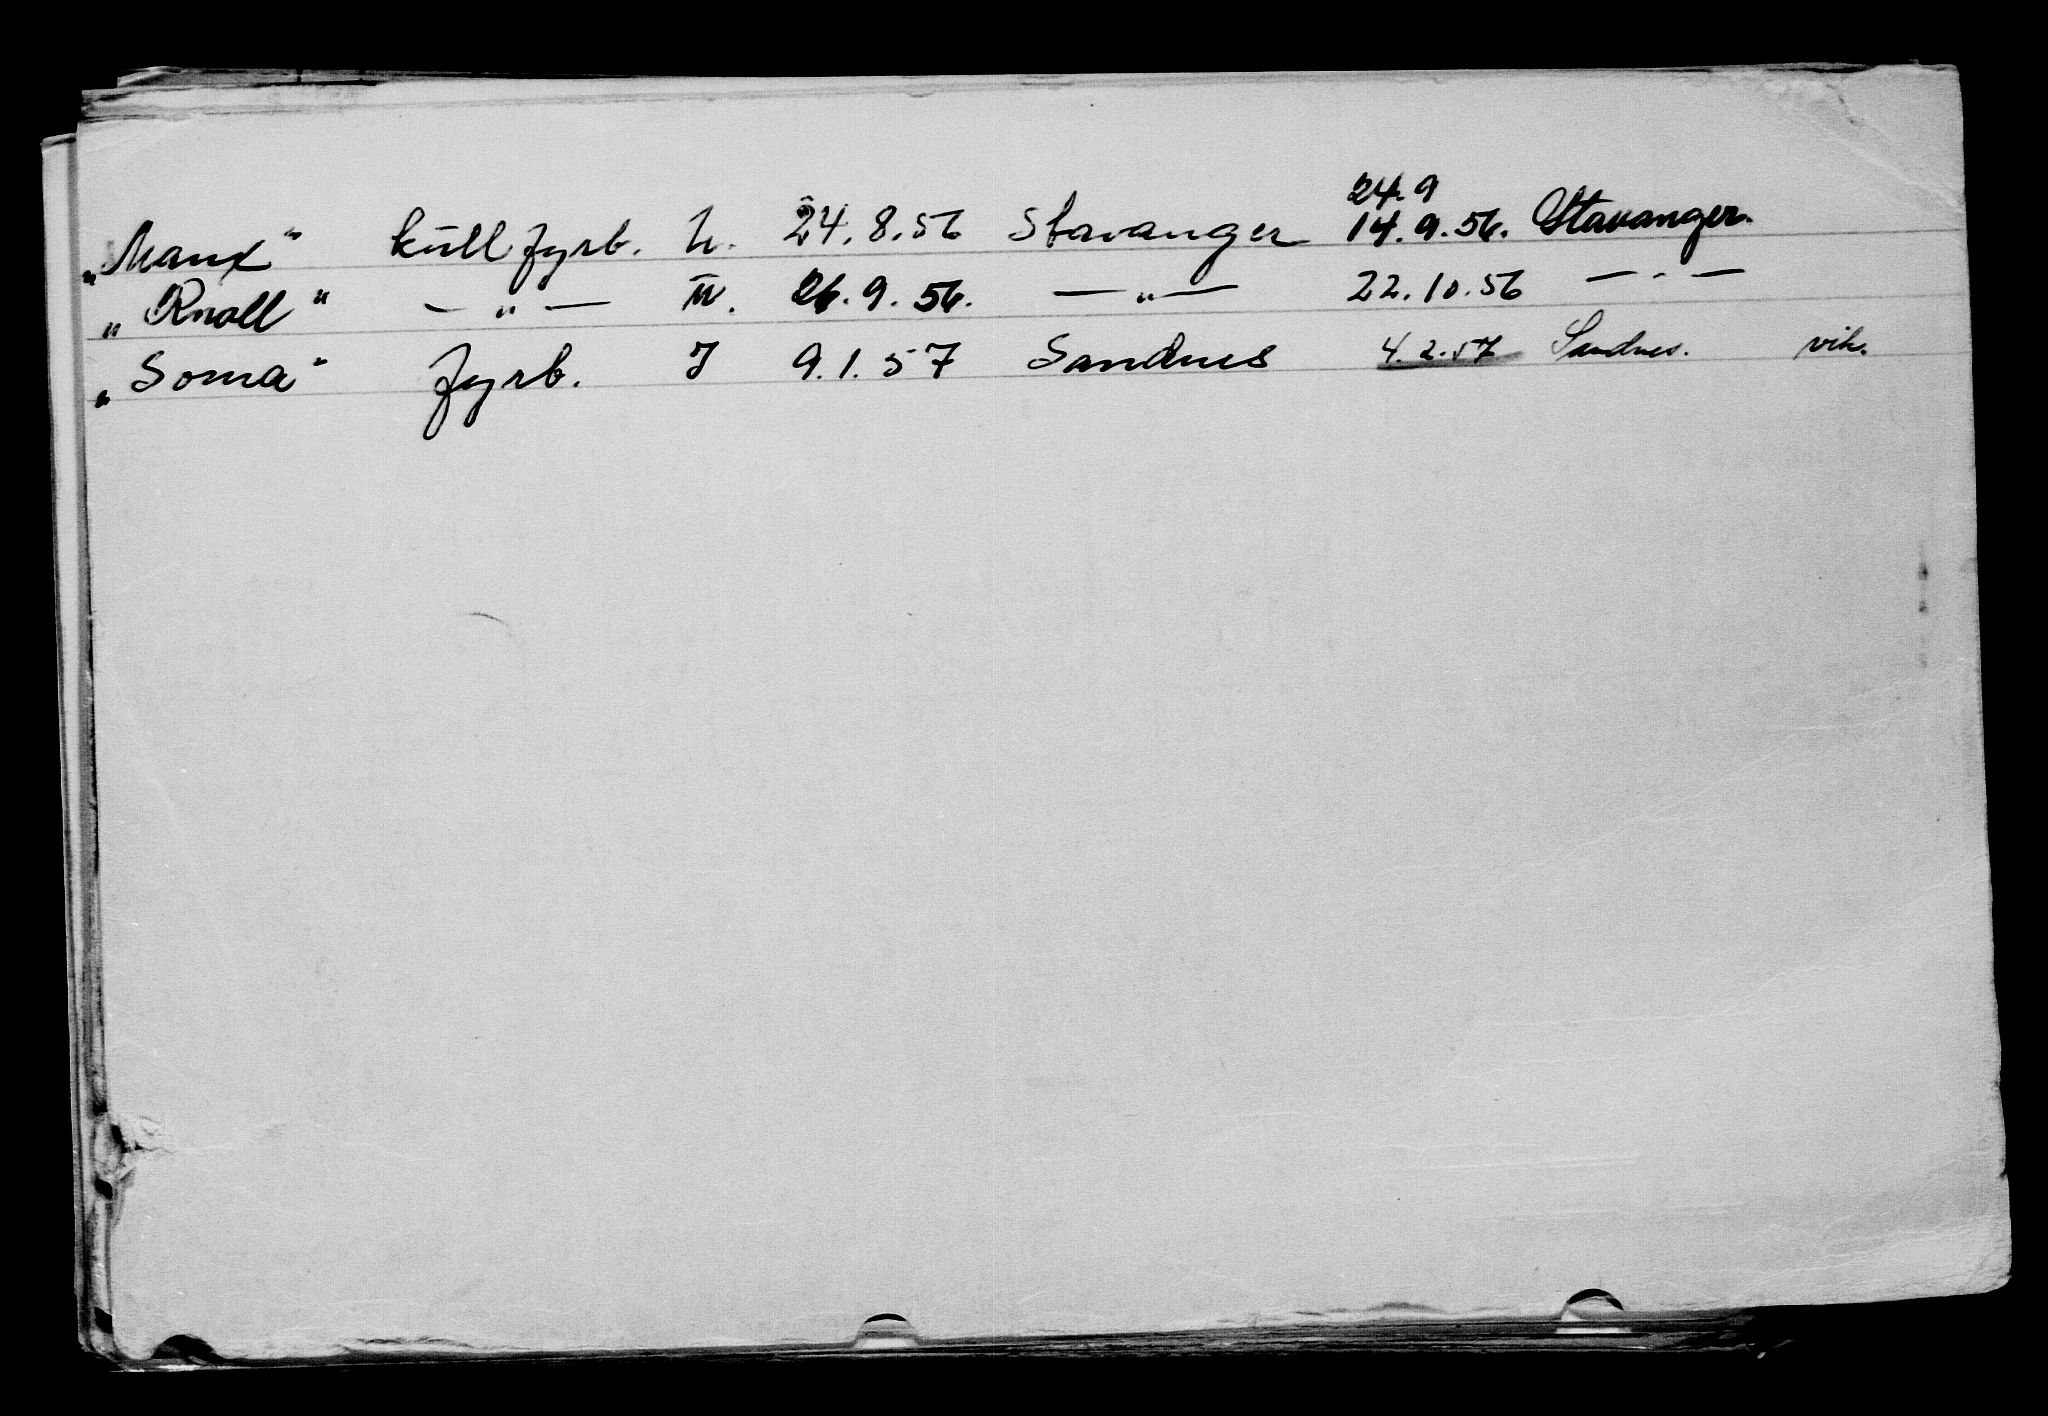 24.9
„Manx“ kull fyrb. U. 24.8.56 Stavanger 14.9.56. Stavanger.
„Knoll“ — „ — IV. 26.9.56. — „ — 22.10.56 — " —
„Soma“ fyrb. I 9.1.57 Sandnes 4.2.57 Sandnes. vik.